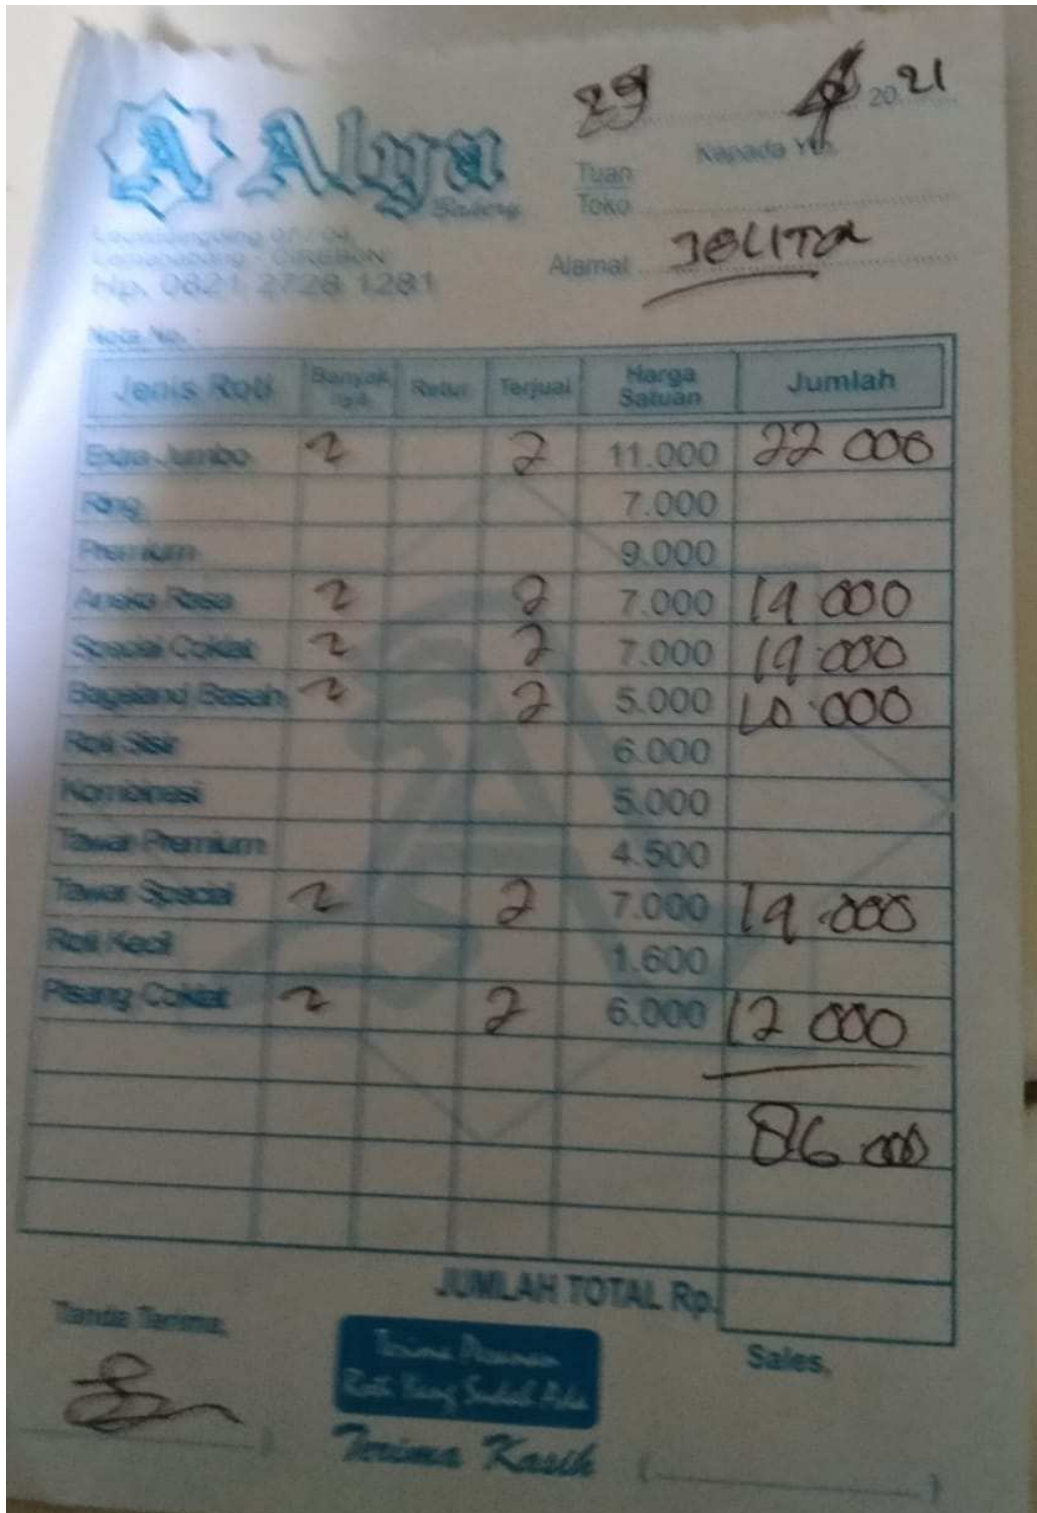 29 2021
A Alya
Bakery
Kepada Yth.
Tuan
Toko
CIREBON
Alamat JOLITA
Hp. 0821 2728 1281
Nota No.
Jenis Roti Banyak Retur Terjual Harga Satuan Jumlah
Extra Jumbo 2 2 11.000 22 000
Ring 7.000
Premium 9.000
Aneka Rasa 2 2 7.000 14 000
Special Coklat 2 2 7.000 14.000
Bageland Basah 2 2 5.000 10.000
Roti Sisir 6.000
Kombinasi 5.000
Tawar Premium 4.500
Tawar Special 2 2 7.000 14.000
Roti Kecil 1.600
Pisang Coklat 2 2 6.000 12 000
86 000
JUMLAH TOTAL Rp.
Tanda Terima,
Terima Pesanan
Roti Yang Sudah Ada
Sales,
Terima Kasih